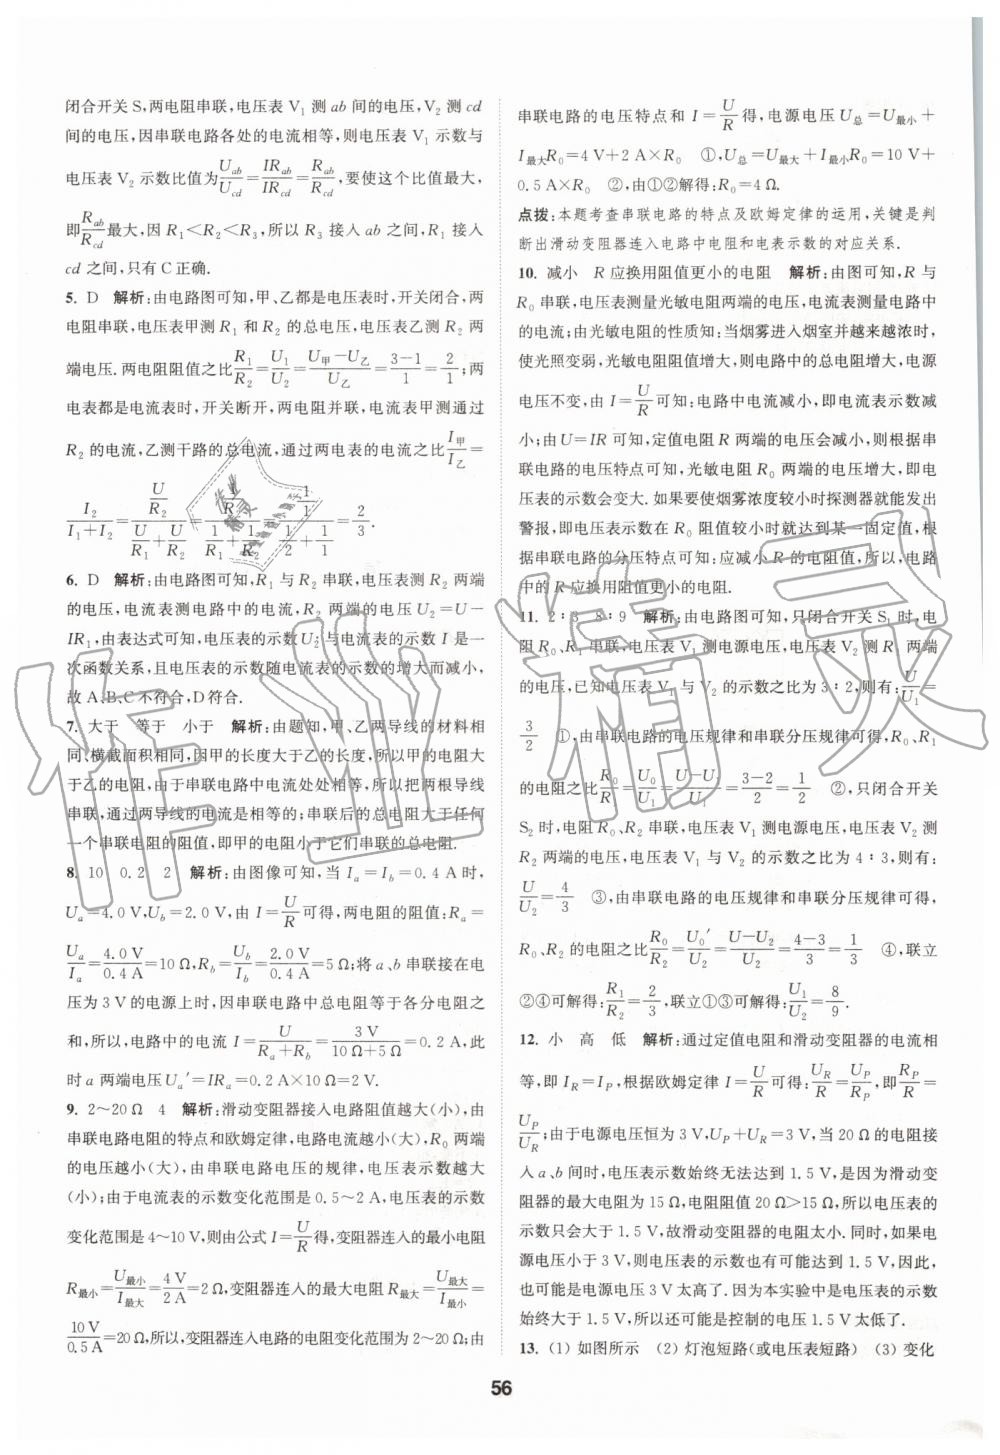 闭合开关 S,两电阻串联,电压表 V₁ 测 ab 间的电压,V₂ 测 cd
间的电压,因串联电路各处的电流相等,则电压表 V₁ 示数与
电压表 V₂ 示数比值为 U_ab/U_cd = IR_ab/IR_cd = R_ab/R_cd,要使这个比值最大,
即 R_ab/R_cd 最大,因 R₁<R₂<R₃,所以 R₃ 接入 ab 之间,R₁ 接入
cd 之间,只有 C 正确.
5. D 解析:由电路图可知,甲、乙都是电压表时,开关闭合,两
电阻串联,电压表甲测 R₁ 和 R₂ 的总电压,电压表乙测 R₂ 两
端电压. 两电阻阻值之比 R₁/R₂ = U₁/U₂ = (U甲−U乙)/U乙 = (3−1)/1 = 2/1;两
电表都是电流表时,开关断开,两电阻并联,电流表甲测通过
R₂ 的电流,乙测干路的总电流,通过两电表的电流之比 I甲/I乙 =
I₂/(I₁+I₂) = (U/R₂)/(U/R₁+U/R₂) = (1/R₂)/(1/R₁+1/R₂) = (1/1)/(1/2+1/1) = 2/3.
6. D 解析:由电路图可知,R₁ 与 R₂ 串联,电压表测 R₂ 两端
的电压,电流表测电路中的电流,R₂ 两端的电压 U₂=U−
IR₁,由表达式可知,电压表的示数 U₂ 与电流表的示数 I 是一
次函数关系,且电压表的示数随电流表的示数的增大而减小,
故 A、B、C 不符合,D 符合.
7. 大于 等于 小于 解析:由题知,甲、乙两导线的材料相
同、横截面积相同,因甲的长度大于乙的长度,所以甲的电阻大
于乙的电阻;由于串联电路中电流处处相等,所以把两根导线
串联,通过两导线的电流是相等的;串联后的总电阻大于任何
一个串联电阻的阻值,即甲的电阻小于它们串联的总电阻.
8. 10 0.2 2 解析:由图像可知,当 Iₐ=I_b=0.4 A 时,
Uₐ=4.0 V,U_b=2.0 V,由 I=U/R 可得,两电阻的阻值:Rₐ=
Uₐ/Iₐ = 4.0 V/0.4 A = 10 Ω,R_b = U_b/I_b = 2.0 V/0.4 A = 5 Ω;将 a、b 串联接在电
压为 3 V 的电源上时,因串联电路中总电阻等于各分电阻之
和,所以,电路中的电流 I = U/(Rₐ+R_b) = 3 V/(10 Ω+5 Ω) = 0.2 A,此
时 a 两端电压 Uₐ′=IRₐ=0.2 A×10 Ω=2 V.
9. 2～20 Ω 4 解析:滑动变阻器接入电路阻值越大(小),由
串联电路电阻的特点和欧姆定律,电路电流越小(大),R₀ 两端
的电压越小(大),由串联电路电压的规律,电压表示数越大
(小);由于电流表的示数变化范围是 0.5～2 A,电压表的示数
变化范围是 4～10 V,则由公式 I=U/R 得,变阻器连入的最小电阻
R最小 = U最小/I最大 = 4 V/2 A = 2 Ω,变阻器连入的最大电阻 R最大 = U最大/I最小 =
10 V/0.5 A = 20 Ω,所以,变阻器连入电路的电阻变化范围为 2～20 Ω;由
串联电路的电压特点和 I=U/R 得,电源电压 U总=U最小+
I最大R₀=4 V+2 A×R₀ ①,U总=U最大+I最小R₀=10 V+
0.5 A×R₀ ②,由①②解得:R₀=4 Ω.
点拨:本题考查串联电路的特点及欧姆定律的运用,关键是判
断出滑动变阻器连入电路中电阻和电表示数的对应关系.
10. 减小 R 应换用阻值更小的电阻 解析:由图可知,R 与
R₀ 串联,电压表测量光敏电阻两端的电压,电流表测量电路中
的电流;由光敏电阻的性质知:当烟雾进入烟室并越来越浓时,
使光照变弱,光敏电阻阻值增大,则电路中的总电阻增大,电源
电压不变,由 I=U/R 可知:电路中电流减小,即电流表示数减
小;由 U=IR 可知,定值电阻 R 两端的电压会减小,则根据串
联电路的电压特点可知,光敏电阻 R₀ 两端的电压增大,即电
压表的示数会变大. 如果要使烟雾浓度较小时探测器就能发出
警报,即电压表示数在 R₀ 阻值较小时就达到某一固定值,根
据串联电路的分压特点可知:应减小 R 的电阻值,所以,电路
中的 R 应换用阻值更小的电阻.
11. 2∶3 8∶9 解析:由电路图可知,只闭合开关 S₁ 时,电
阻 R₀、R₁ 串联,电压表 V₁ 测电源电压,电压表 V₂ 测 R₁ 两端
的电压,已知电压表 V₁ 与 V₂ 的示数之比为 3∶2,则有:U/U₁ =
3/2 ①,由串联电路的电压规律和串联分压规律可得,R₀、R₁
的电阻之比 R₀/R₁ = U₀/U₁ = (U−U₁)/U₁ = (3−2)/2 = 1/2 ②,只闭合开关
S₂ 时,电阻 R₀、R₂ 串联,电压表 V₁ 测电源电压,电压表 V₂ 测
R₂ 两端的电压,电压表 V₁ 与 V₂ 的示数之比为 4∶3,则有:
U/U₂ = 4/3 ③,由串联电路的电压规律和串联分压规律可得,
R₀、R₂ 的电阻之比 R₀/R₂ = U₀′/U₂ = (U−U₂)/U₂ = (4−3)/3 = 1/3 ④,联立
②④可解得:R₁/R₂ = 2/3,联立①③可解得:U₁/U₂ = 8/9.
12. 小 高 低 解析:通过定值电阻和滑动变阻器的电流相
等,即 I_R=I_P,根据欧姆定律 I=U/R 可得:U_R/R = U_P/R_P,即 R_P/R =
U_P/U_R;由于电源电压恒为 3 V,U_P+U_R=3 V,当 20 Ω 的电阻接
入 a、b 间时,电压表示数始终无法达到 1.5 V,是因为滑动变
阻器的最大电阻为 15 Ω,电阻阻值 20 Ω>15 Ω,所以电压表的
示数只会大于 1.5 V,故滑动变阻器的电阻太小. 同时,如果电
源电压小于 3 V,则电压表的示数也有可能达到 1.5 V,因此,
也可能是电源电压 3 V 太高了. 因为本实验中是电压表的示数
始终大于 1.5 V,所以还可能是控制的电压 1.5 V 太低了.
13. (1) 如图所示 (2) 灯泡短路(或电压表短路) (3) 变化
56
作业精灵
作业
精灵